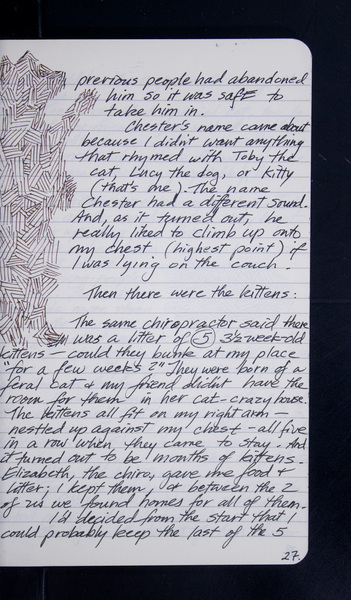 previous people had abandoned
him so it was safe to
take him in.
Chester's name came about
because I didn't want anything
that rhymed with Toby the
cat, Lucy the dog, or Kitty
(that's me). The name
Chester had a different sound.
And, as it turned out, he
really liked to climb up onto
my chest (highest point) if
I was lying on the couch.
Then there were the kittens:
The same chiropractor said there
was a litter of 5 3½ week-old
kittens — could they bunk at my place
"for a few weeks?" They were born of a
feral cat & my friend didn't have the
room for them in her cat-crazy house.
The kittens all fit on my right arm —
nestled up against my chest - all five
in a row when they came to stay. And
it turned out to be months of kittens.
Elizabeth, the chiro, gave me food &
litter; I kept them, & between the 2
of us we found homes for all of them.
I'd decided from the start that I
could probably keep the last of the 5
27.